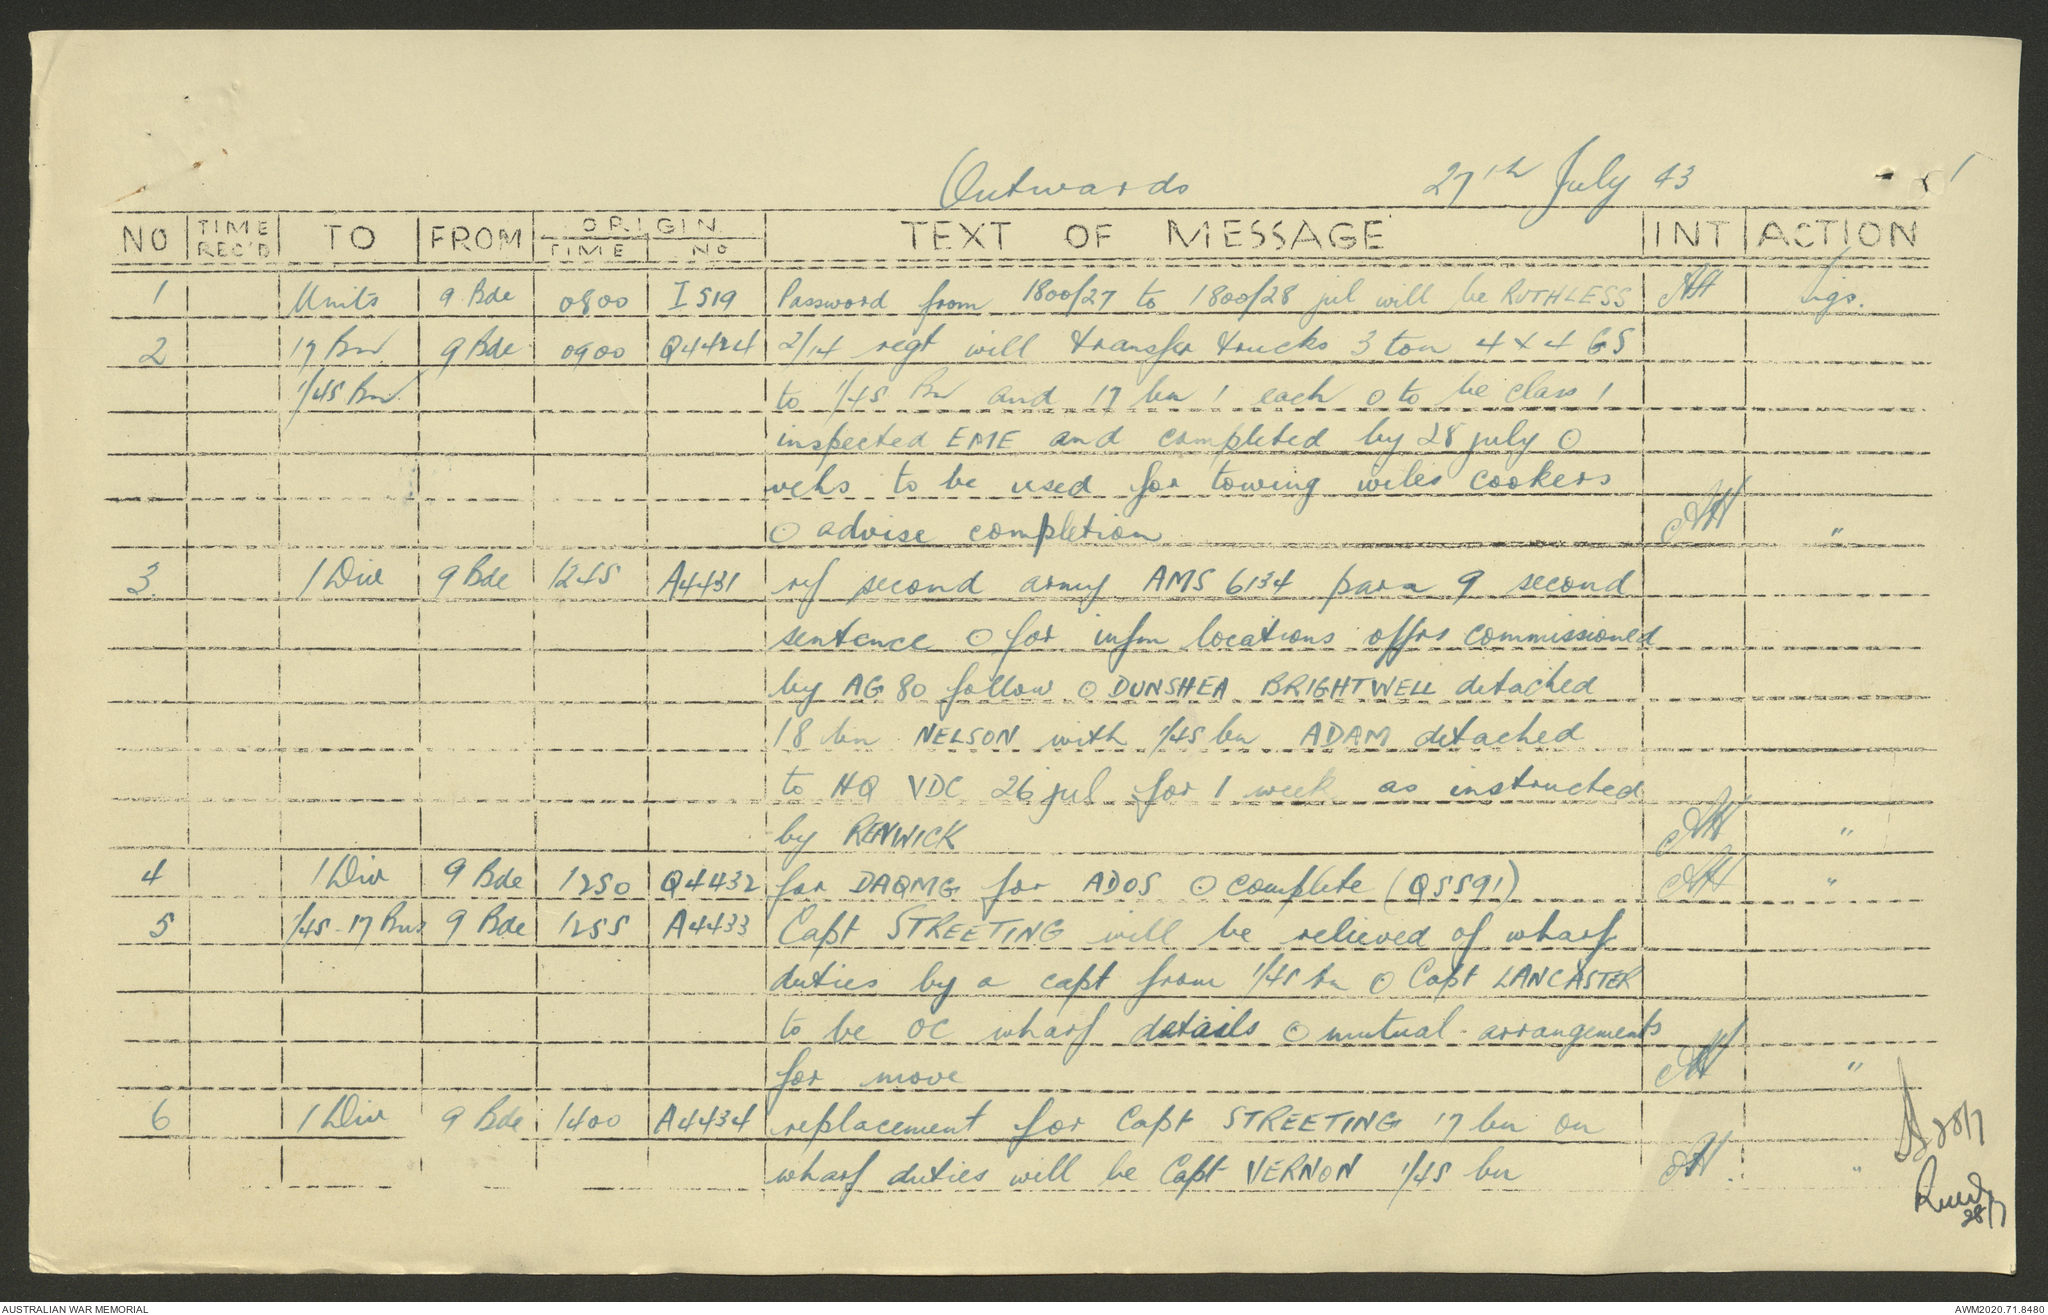 Outwards 27th July 43 1
NO TIME REC'D TO FROM ORIGIN TIME NO TEXT OF MESSAGE INT ACTION
1 Units 9 Bde 0800 I 519 Password from 1800/27 to 1800/28 jul will be RUTHLESS AH
2 17 Bn 9 Bde 0900 Q4424 2/14 regt will transfer trucks 3 ton 4 x 4 GS
1/45 Bn. to 1/45 Bn and 17 bn 1 each ⊙ to be class 1
inspected EME and completed by 28 july ⊙
vehs to be used for towing wiles cookers
⊙ advise completion AH "
3. 1 Div 9 Bde 1245 A4431 ref second army AMS 6134 para 9 second
sentence ⊙ for infm locations offrs commissioned
by AG 80 follow ⊙ DUNSHEA BRIGHTWELL detached
18 bn NELSON with 1/45 bn ADAM detached
to HQ VDC 26 jul for 1 week as instructed
by RENWICK AH "
4 1 Div 9 Bde 1250 Q4432 for DAQMG for ADOS ⊙ complete (Q5591) AH "
5 1/45 - 17 Bns 9 Bde 1255 A4433 Capt STREETING will be relieved of wharf
duties by a capt from 1/45 bn ⊙ Capt LANCASTER
to be OC wharf details ⊙ mutual arrangements
for move AH "
6 1 Div 9 Bde 1400 A4434 replacement for Capt STREETING 17 bn on
wharf duties will be Capt VERNON 1/45 bn AH "
28/7
28/7
AUSTRALIAN WAR MEMORIAL AWM2020.71.8480